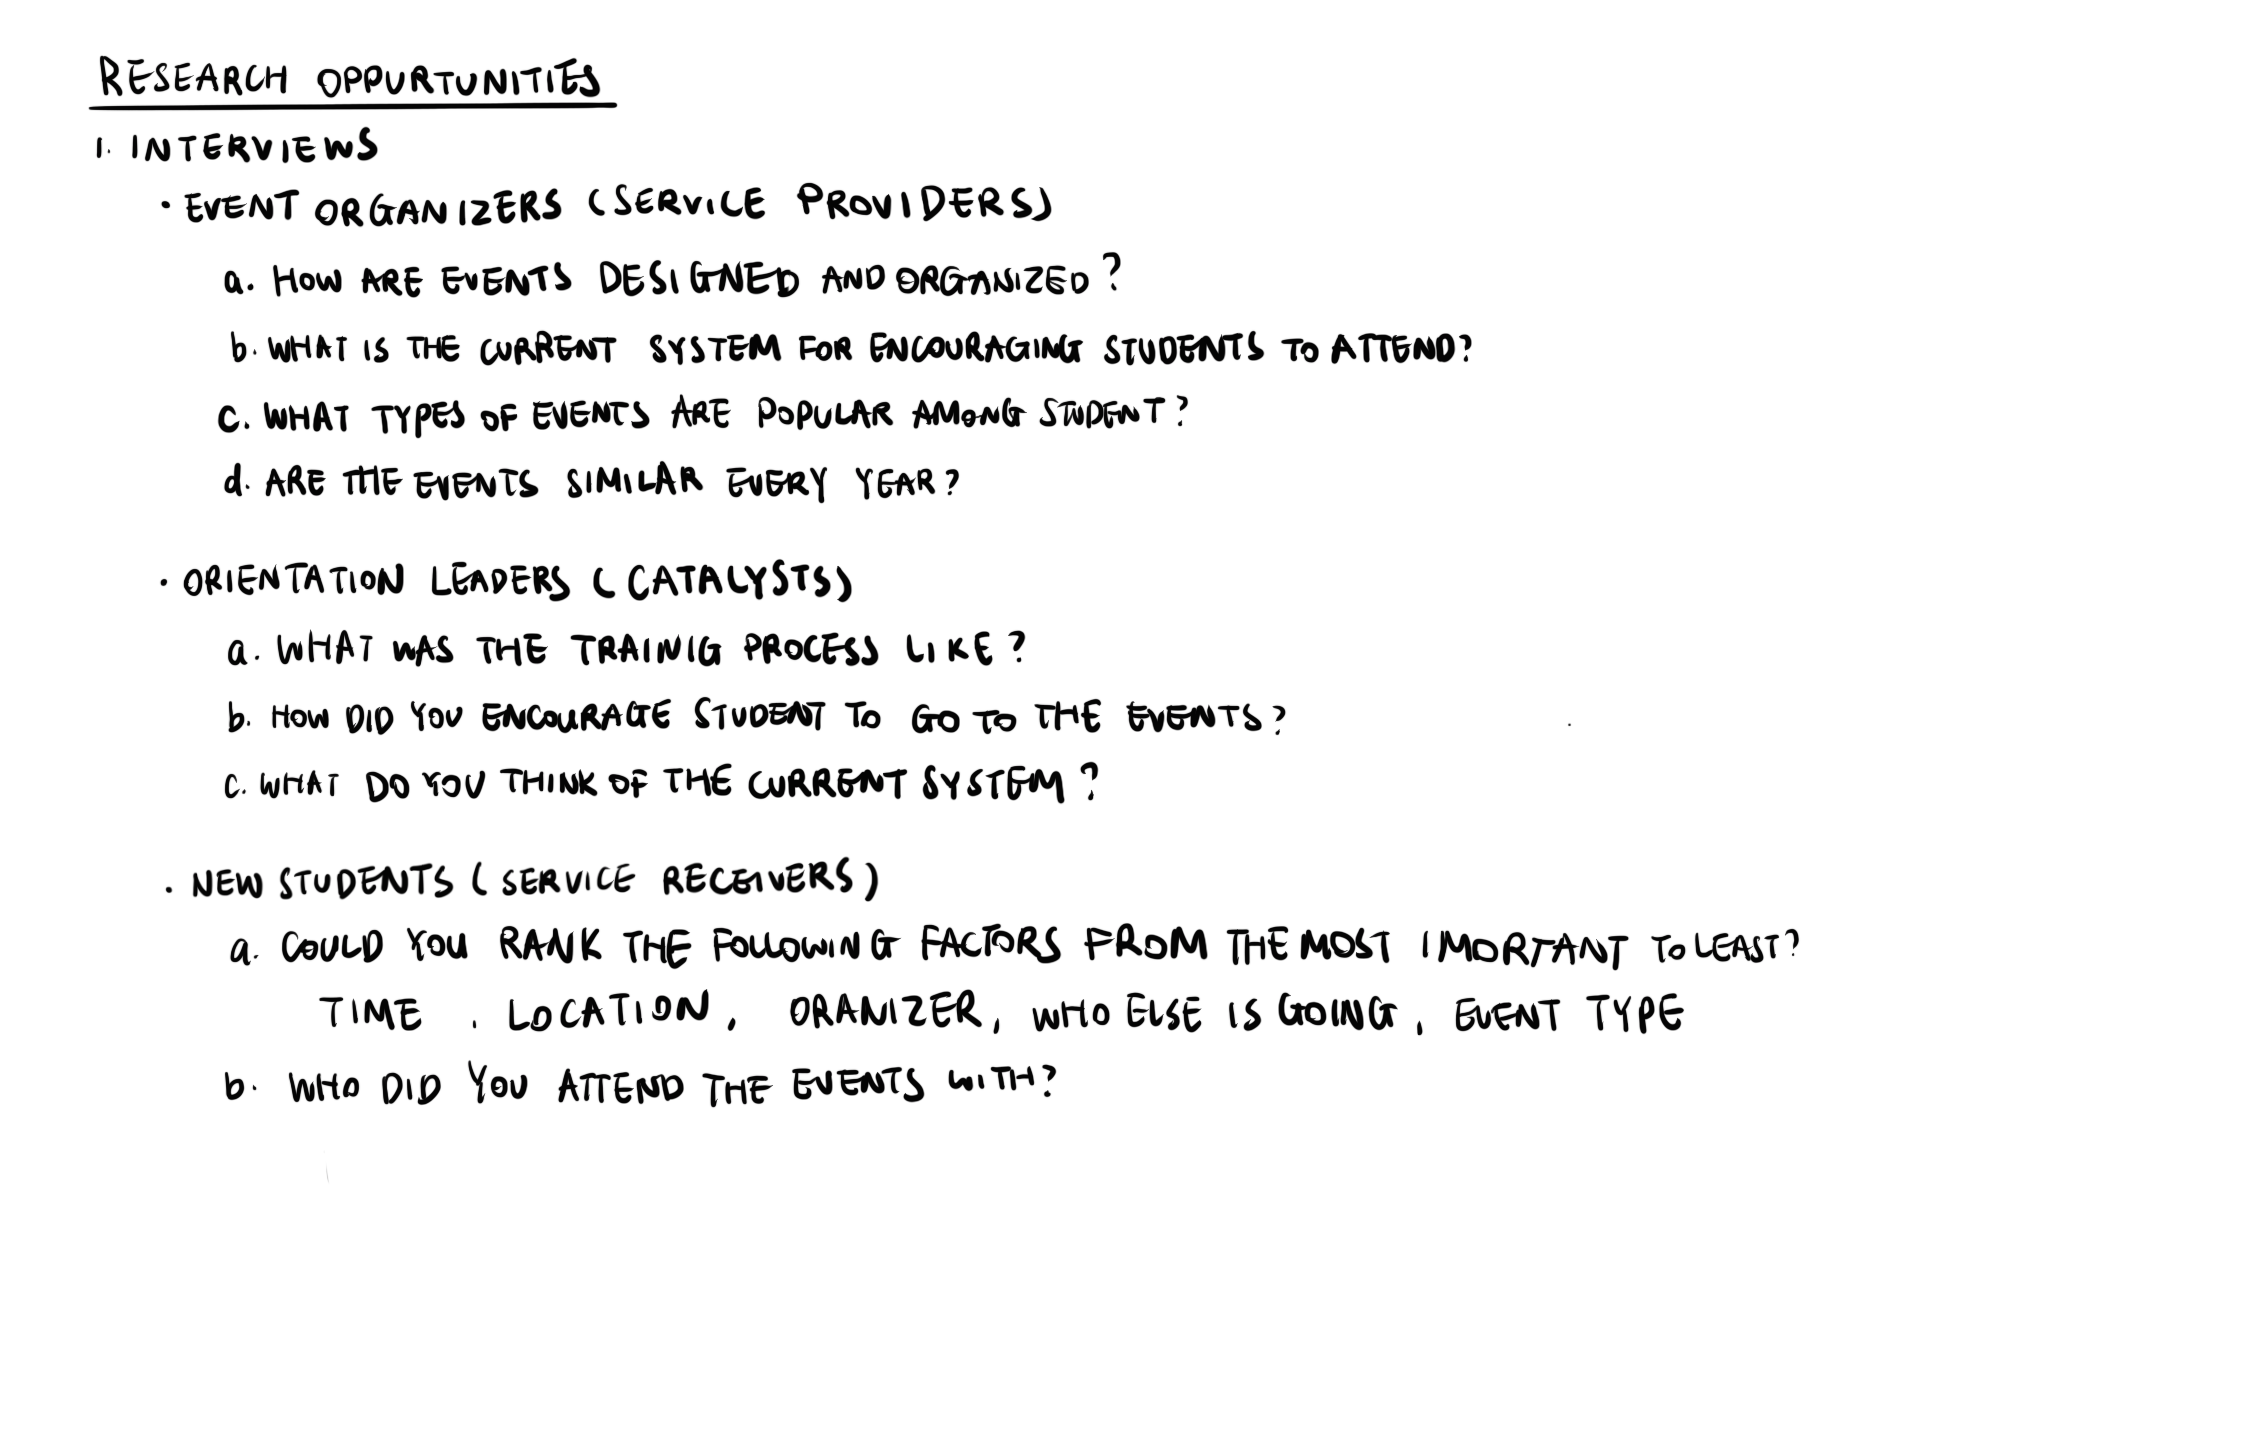 RESEARCH OPPURTUNITIES
1. INTERVIEWS
· EVENT ORGANIZERS (SERVICE PROVIDERS)
a. HOW ARE EVENTS DESIGNED AND ORGANIZED?
b. WHAT IS THE CURRENT SYSTEM FOR ENCOURAGING STUDENTS TO ATTEND?
c. WHAT TYPES OF EVENTS ARE POPULAR AMONG STUDENT?
d. ARE THE EVENTS SIMILAR EVERY YEAR?
· ORIENTATION LEADERS (CATALYSTS)
a. WHAT WAS THE TRAINIG PROCESS LIKE?
b. HOW DID YOU ENCOURAGE STUDENT TO GO TO THE EVENTS?
c. WHAT DO YOU THINK OF THE CURRENT SYSTEM?
· NEW STUDENTS (SERVICE RECEIVERS)
a. COULD YOU RANK THE FOLLOWING FACTORS FROM THE MOST IMORTANT TO LEAST?
TIME, LOCATION, ORANIZER, WHO ELSE IS GOING, EVENT TYPE
b. WHO DID YOU ATTEND THE EVENTS WITH?